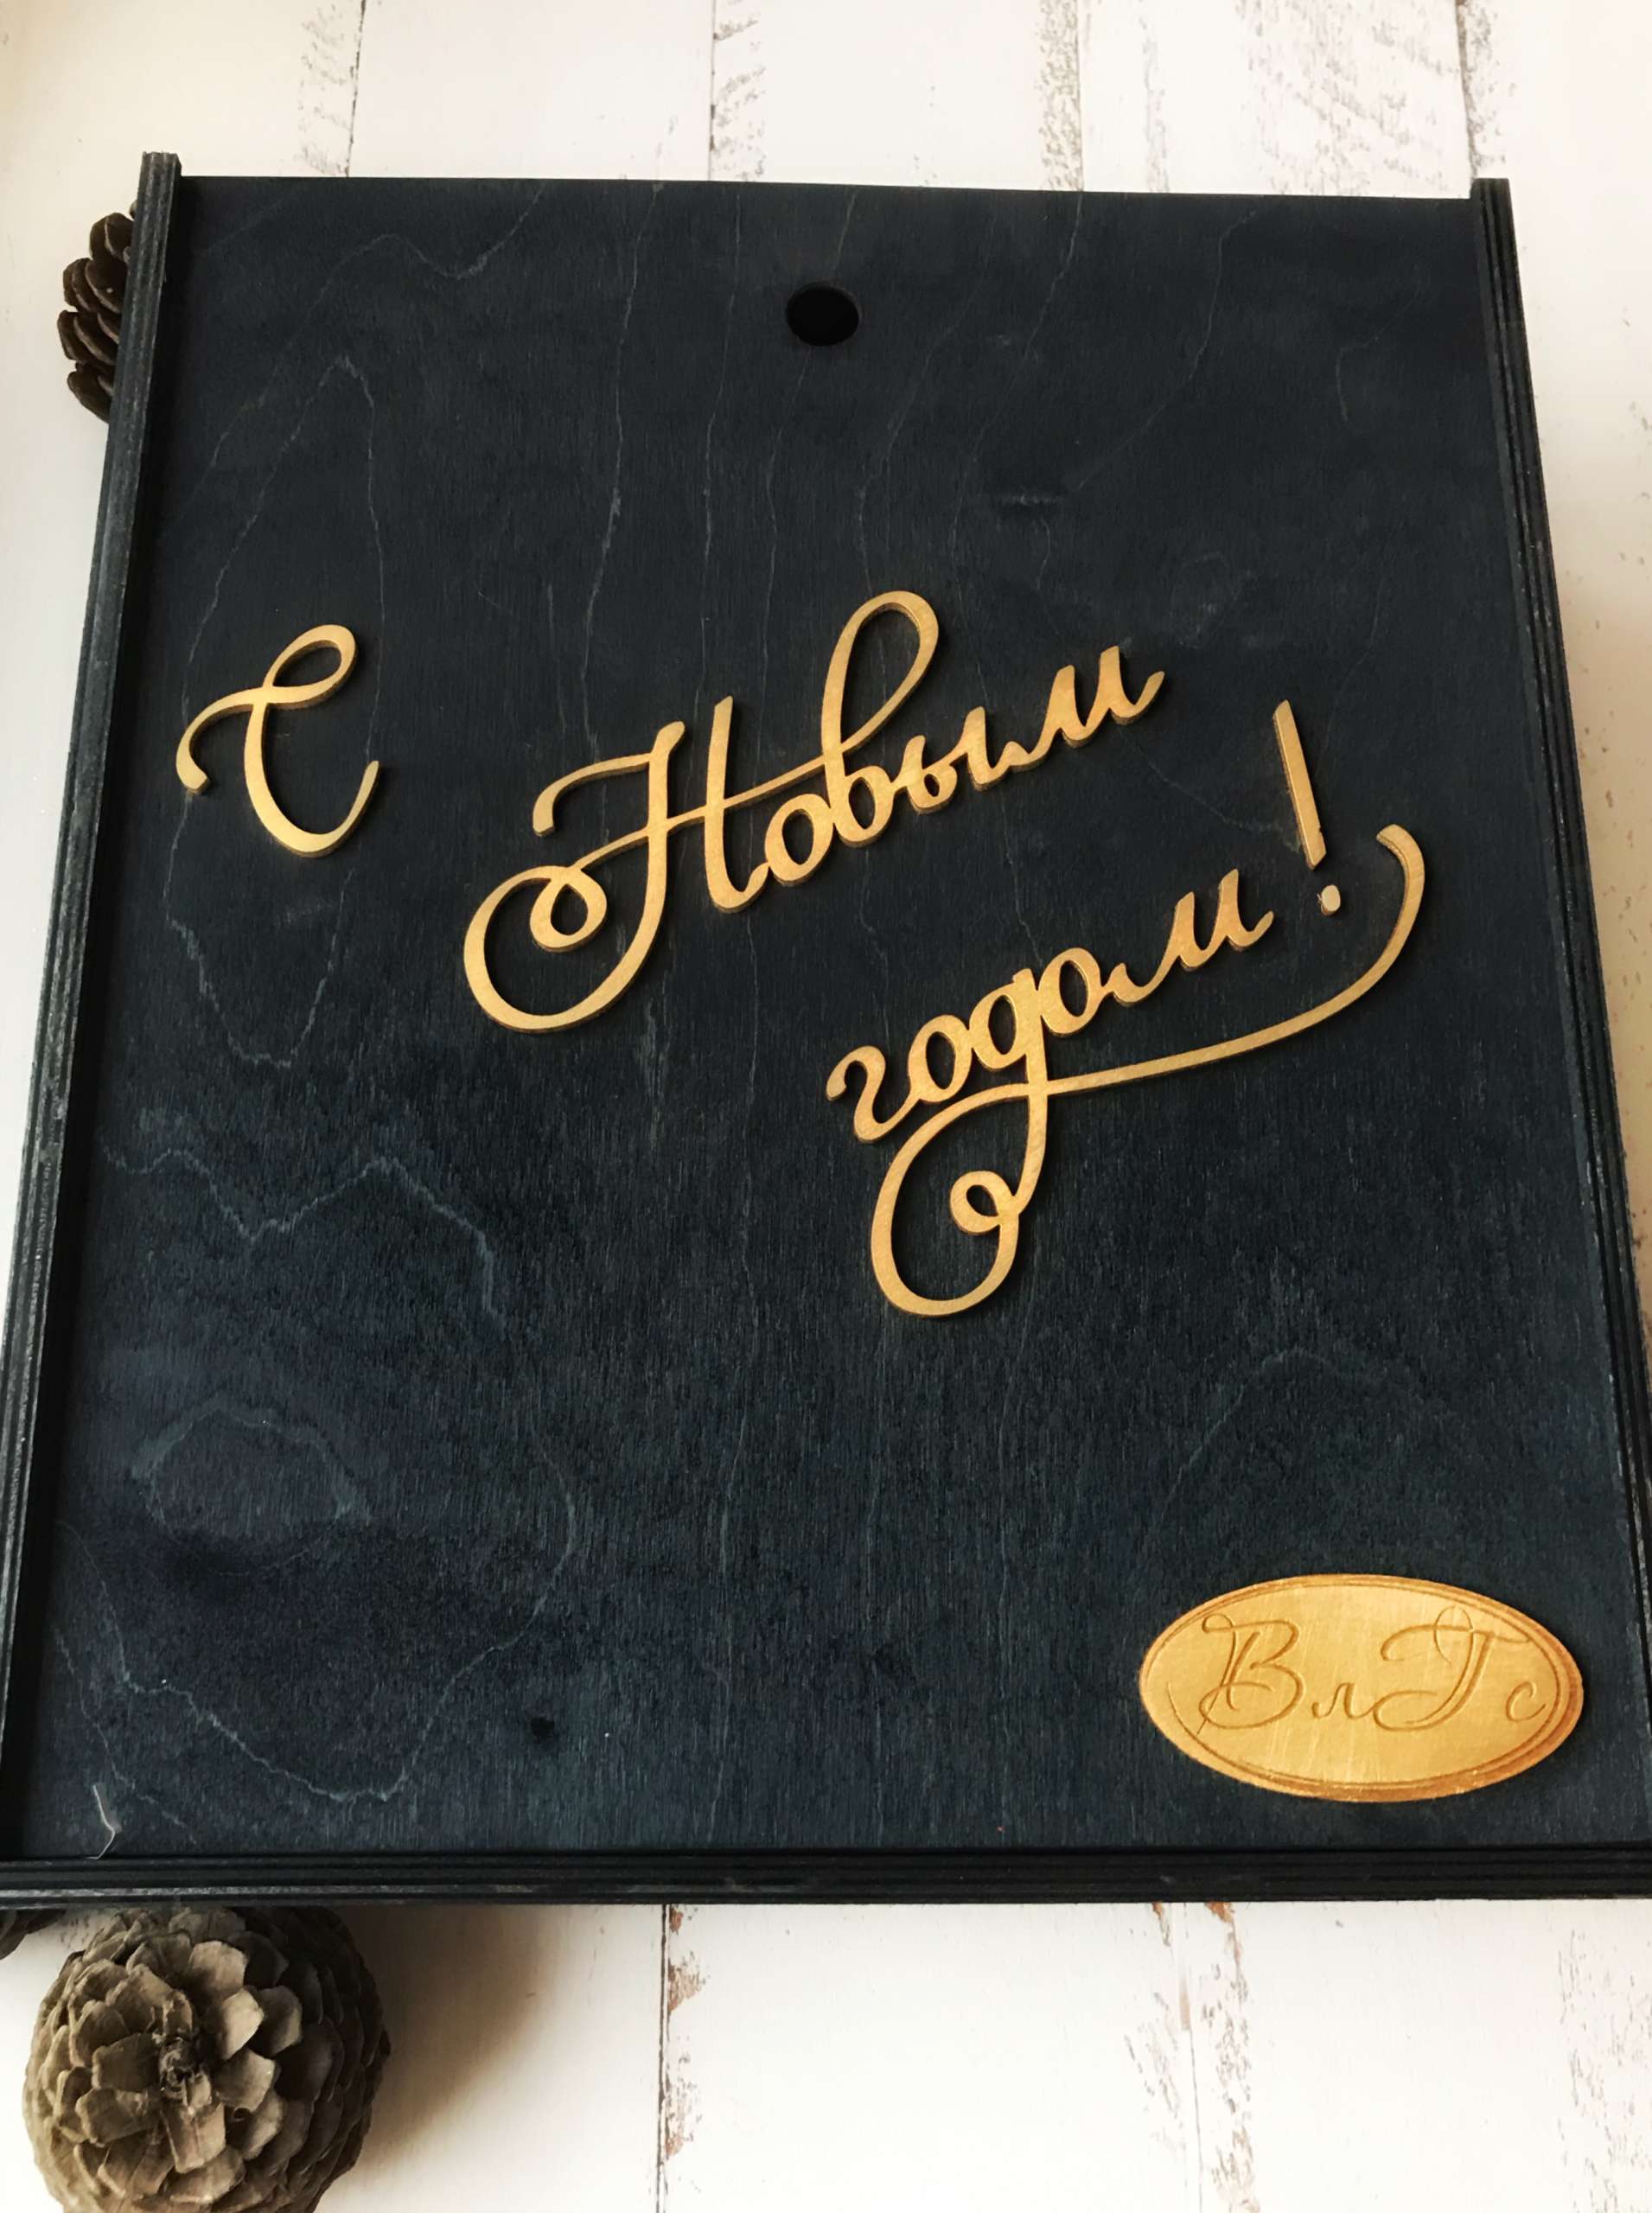 С Новым
годом!
ВлГс